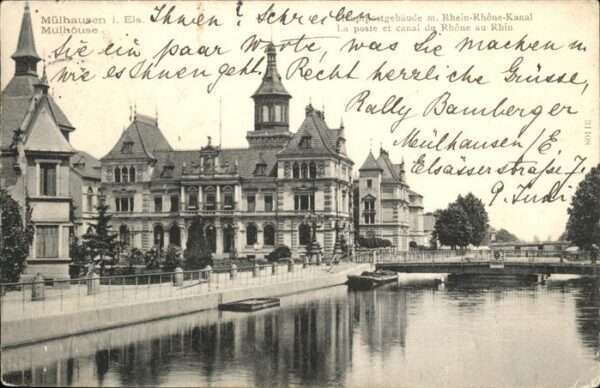 Mülhausen i. Els.
Mulhouse
Hauptpostgebäude m. Rhein-Rhône-Kanal
La poste et canal du Rhône au Rhin
Ihnen? Schreiben
Sie ein paar Worte, was Sie machen u.
wie es Ihnen geht. Recht herzliche Grüsse,
Rally Bamberger
Mülhausen/E.
Elsässerstraße 7.
9. Juni